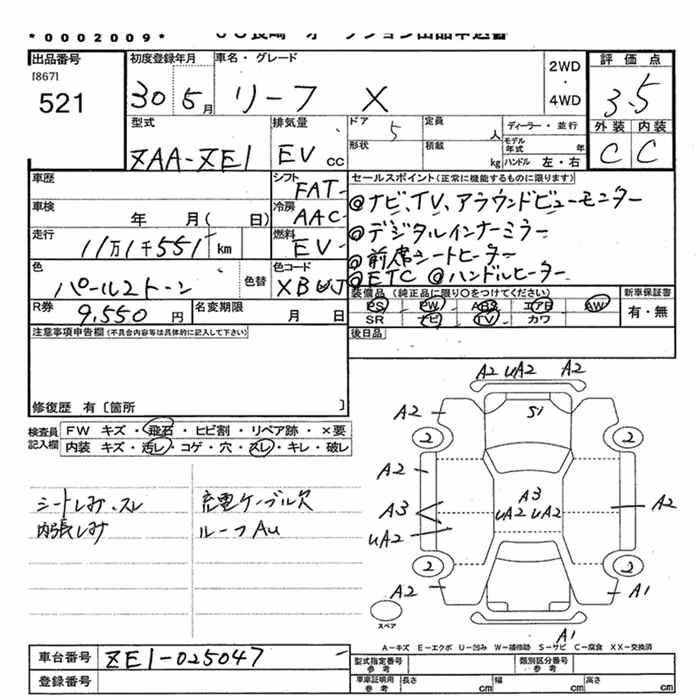 *0002009*
出品番号 初度登録年月 車名・グレード 2WD・4WD 評価点
[867]
521 30 5月 リーフ X 3.5
型式 排気量 ドア 5 定員 人 ディーラー・並行 外装 内装
ZAA-ZE1 EV cc 形状 積載 kg モデル年式 年 ハンドル 左・右 C C
車歴 シフト FAT セールスポイント(正常に機能するものに限ります)
車検 年 月( 日) 冷房 AAC ◎ナビ、TV、アラウンドビューモニター
走行 11万1千551 km 燃料 EV ◎デジタルインナーミラー
◎前席シートヒーター
色 パール2トーン 色替 色コード XBJ ◎ETC ◎ハンドルヒーター
R券 9,550円 名変期限 月 日 装備品(純正品に限り○をつけてください) 新車保証書
PS PW ABS エアB AW 有・無
SR ナビ TV カワ
注意事項申告欄(不具合内容等は具体的に記入して下さい) 後日品
修復歴 有〔箇所 〕
検査員記入欄 FW キズ・飛石・ヒビ割・リペア跡・×要
内装 キズ・汚レ・コゲ・穴・スレ・キレ・破レ
シートしみ、スレ 充電ケーブル欠
内張しみ ルーフAu
A2 UA2 A2
A2 S1
2 2
A2
A3 A3 A2
UA2 UA2
UA2
2 2
A2 A1
スペア A1
A−キズ E−エクボ U−凹み W−補修跡 S−サビ C−腐食 XX−交換済
車台番号 ZE1-025047 型式指定番号 参考 類別区分番号 参考
登録番号 車庫証明用 参考 長さ cm 幅 cm 高さ cm